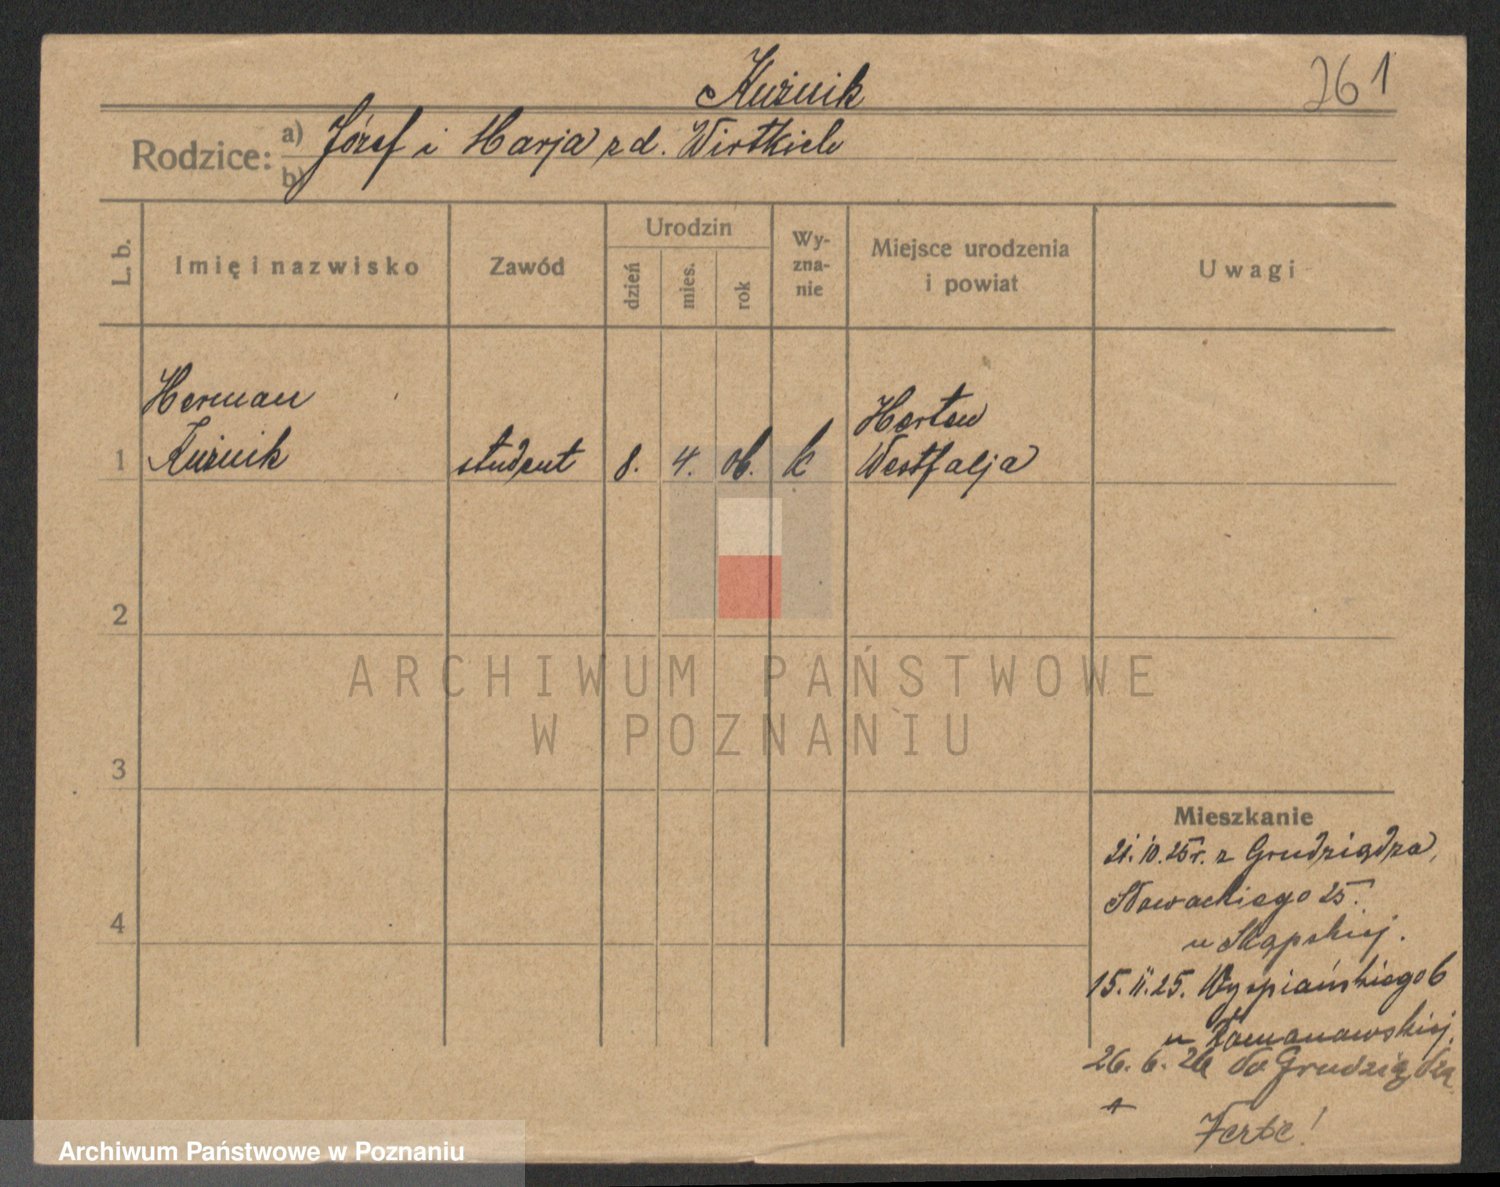 Kuźnik
261
Rodzice: a) Józef i Marja z d. Wirtkich
b)
L. b.
Imię i nazwisko
Zawód
Urodzin
dzień
mies.
rok
Wy-
zna-
nie
Miejsce urodzenia
i powiat
Uwagi
Herman
Kuźnik
1
student
8.
4.
06.
k
Herten
Westfalja
2
3
4
ARCHIWUM PAŃSTWOWE
W POZNANIU
Mieszkanie
21.10.25r. z Grudziądza,
Słowackiego 25.
u Skąpskiej.
15.11.25. Wyspiańskiego 6
u Romanowskiej.
26.6.26 do Grudziądza
Archiwum Państwowe w Poznaniu